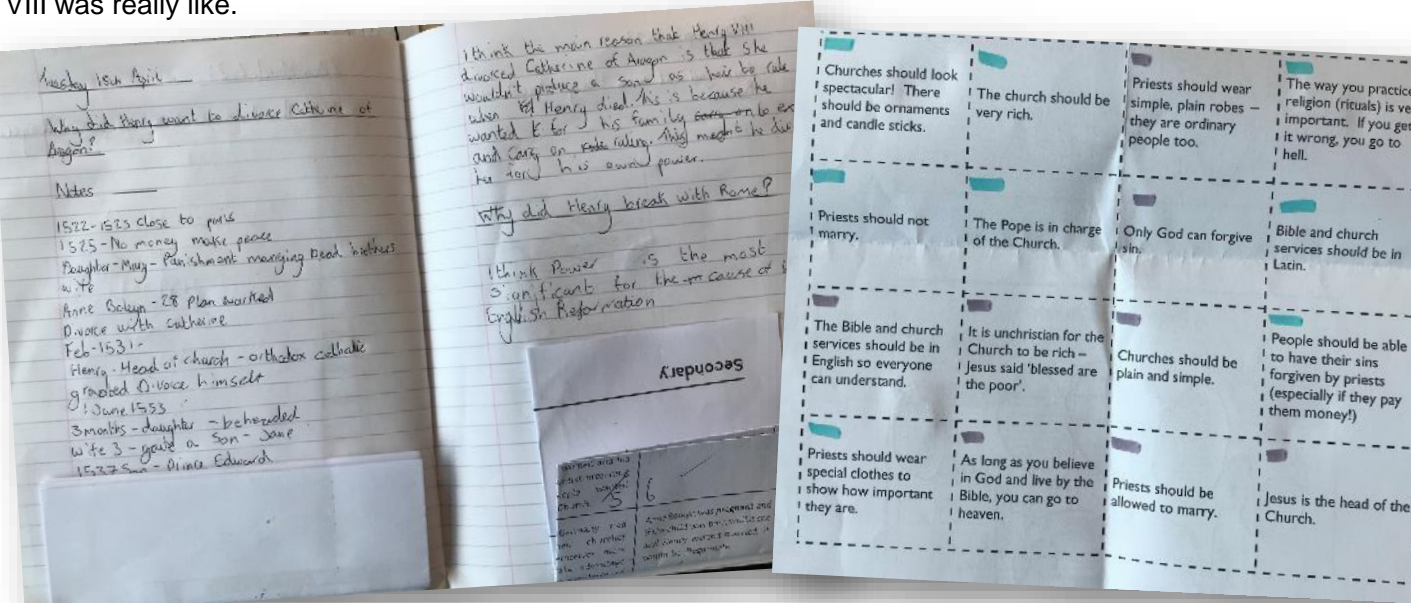 VIII was really like.
Tuesday 18th April
Why did Henry want to divorce Catherine of
Aragon?
Notes
1522-1523 close to paris
1525-No money make peace
Daughter-Mary- Punishment marrying Dead brothers
wife
Anne Boleyn - 28 Plan worked
Divorce with catherine
Feb-1531-
Henry-Head of church - orthodox catholic
granted Divorce himself
1 June 1533
3 months - daughter - beheaded
wife 3 - gave a son - Jane
1537 Son - Prince Edward
I think the main reason that Henry VIII
divorced Catherine of Aragon is that she
wouldn't produce a son as heir to rule
when Henry died. This is because he
wanted for his family carry on to
and carry on ruling. This meant he
for his own power.
Why did Henry break with Rome?
I think Power is the most
significant for the cause of
English Reformation
Secondary
5
6
Churches should look
spectacular! There
should be ornaments
and candle sticks.
The church should be
very rich.
Priests should wear
simple, plain robes –
they are ordinary
people too.
The way you practice
religion (rituals) is
important. If you get
it wrong, you go to
hell.
Priests should not
marry.
The Pope is in charge
of the Church.
Only God can forgive
sin.
Bible and church
services should be in
Latin.
The Bible and church
services should be in
English so everyone
can understand.
It is unchristian for the
Church to be rich –
Jesus said 'blessed are
the poor'.
Churches should be
plain and simple.
People should be able
to have their sins
forgiven by priests
(especially if they pay
them money!)
Priests should wear
special clothes to
show how important
they are.
As long as you believe
in God and live by the
Bible, you can go to
heaven.
Priests should be
allowed to marry.
Jesus is the head of the
Church.